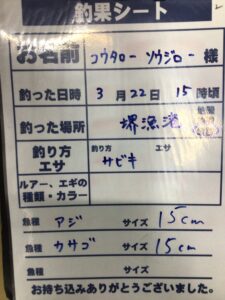 釣果シート
お名前 コウタロー ソウジロー 様
釣った日時 3月22日 15時頃
釣った場所 堺漁港
釣り方 エサ 釣り方 サビキ エサ
ルアー、エギの種類・カラー
魚種 アジ サイズ 15cm
魚種 カサゴ サイズ 15cm
魚種 サイズ
お持ち込みありがとうございました。